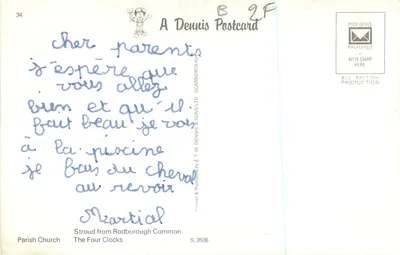 34
A Dennis Postcard
B 2F
POST OFFICE
PREFERRED
AFFIX STAMP
HERE
ALL BRITISH
PRODUCTION
cher parents
j'espère que
vous allez
bien et qu'il
fait beau je vais
à la piscine
je fais du cheval
au revoir
Martial
Stroud from Rodborough Common
Parish Church The Four Clocks S.3506